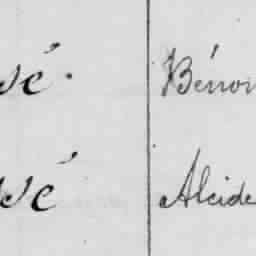 sé. Bénon
sé Alcide